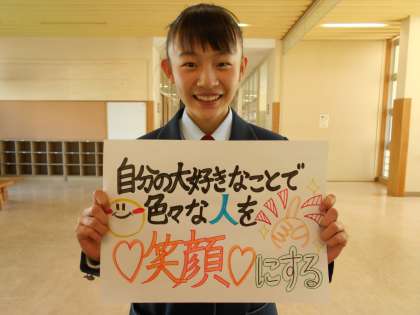 自分の大好きなことで
色々な人を
♡笑顔♡にする